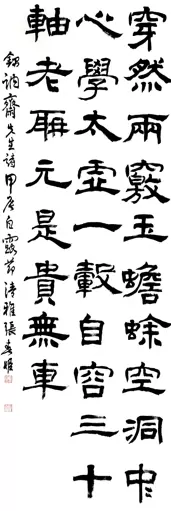 穿然兩竅玉蟾蜍空洞中
心學太虛一轂自容三十
軸老聃元是貴無車
錄訥齋先生詩甲辰白露節清雅張春姬